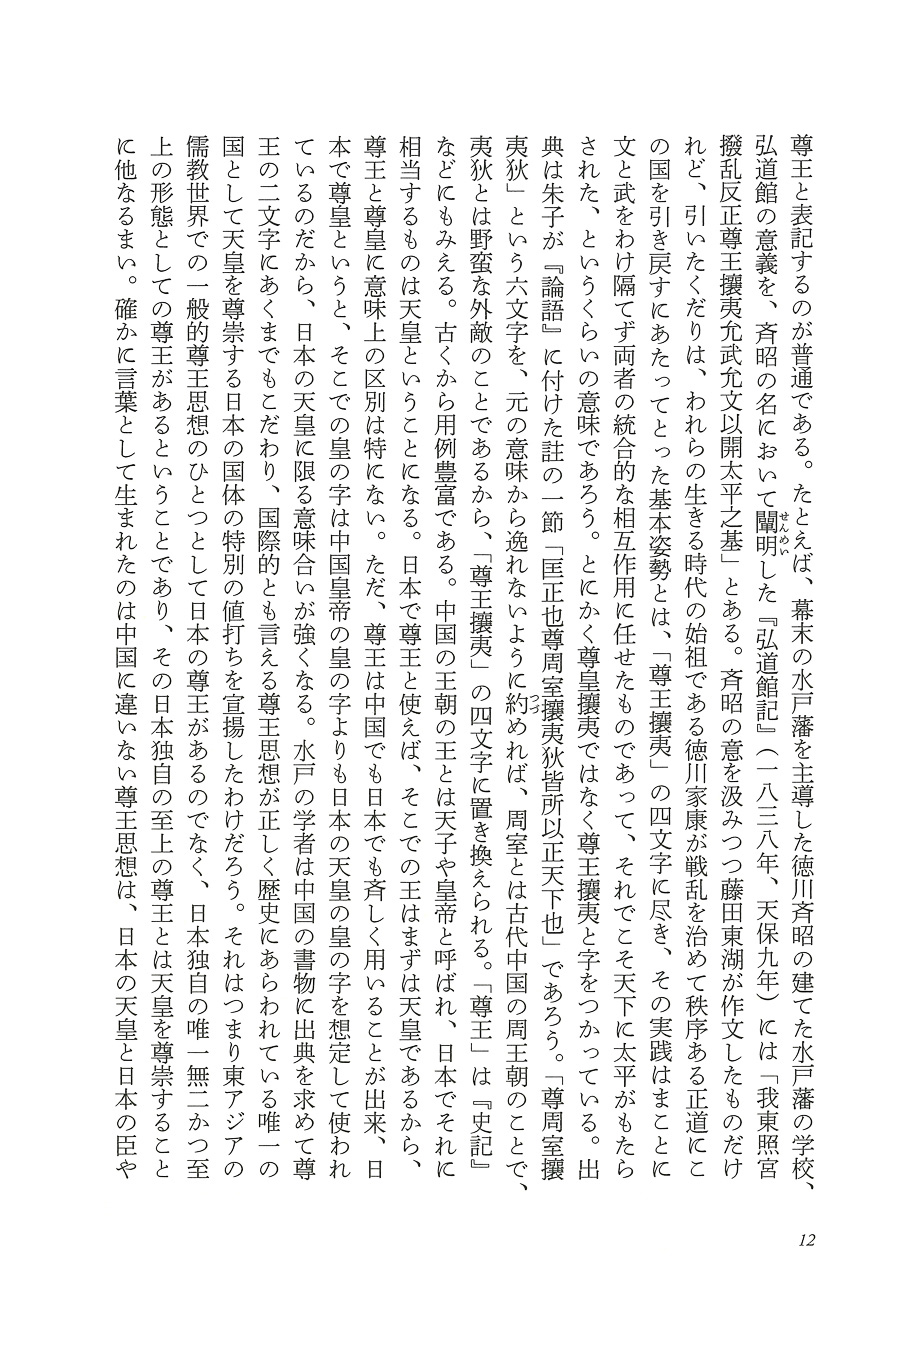 尊王と表記するのが普通である。たとえば、幕末の水戸藩を主導した徳川斉昭の建てた水戸藩の学校、
弘道館の意義を、斉昭の名において闡明した『弘道館記』（一八三八年、天保九年）には「我東照宮
せんめい
撥乱反正尊王攘夷允武允文以開太平之基」とある。斉昭の意を汲みつつ藤田東湖が作文したものだけ
れど、引いたくだりは、われらの生きる時代の始祖である徳川家康が戦乱を治めて秩序ある正道にこ
の国を引き戻すにあたってとった基本姿勢とは、「尊王攘夷」の四文字に尽き、その実践はまことに
文と武をわけ隔てず両者の統合的な相互作用に任せたものであって、それでこそ天下に太平がもたら
された、というくらいの意味であろう。とにかく尊皇攘夷ではなく尊王攘夷と字をつかっている。出
典は朱子が『論語』に付けた註の一節「匡正也尊周室攘夷狄皆所以正天下也」であろう。「尊周室攘
夷狄」という六文字を、元の意味から逸れないように約めれば、周室とは古代中国の周王朝のことで、
つづ
夷狄とは野蛮な外敵のことであるから、「尊王攘夷」の四文字に置き換えられる。「尊王」は『史記』
などにもみえる。古くから用例豊富である。中国の王朝の王とは天子や皇帝と呼ばれ、日本でそれに
相当するものは天皇ということになる。日本で尊王と使えば、そこでの王はまずは天皇であるから、
尊王と尊皇に意味上の区別は特にない。ただ、尊王は中国でも日本でも斉しく用いることが出来、日
本で尊皇というと、そこでの皇の字は中国皇帝の皇の字よりも日本の天皇の皇の字を想定して使われ
ているのだから、日本の天皇に限る意味合いが強くなる。水戸の学者は中国の書物に出典を求めて尊
王の二文字にあくまでもこだわり、国際的とも言える尊王思想が正しく歴史にあらわれている唯一の
国として天皇を尊崇する日本の国体の特別の値打ちを宣揚したわけだろう。それはつまり東アジアの
儒教世界での一般的尊王思想のひとつとして日本の尊王があるのでなく、日本独自の唯一無二かつ至
上の形態としての尊王があるということであり、その日本独自の至上の尊王とは天皇を尊崇すること
に他なるまい。確かに言葉として生まれたのは中国に違いない尊王思想は、日本の天皇と日本の臣や
12